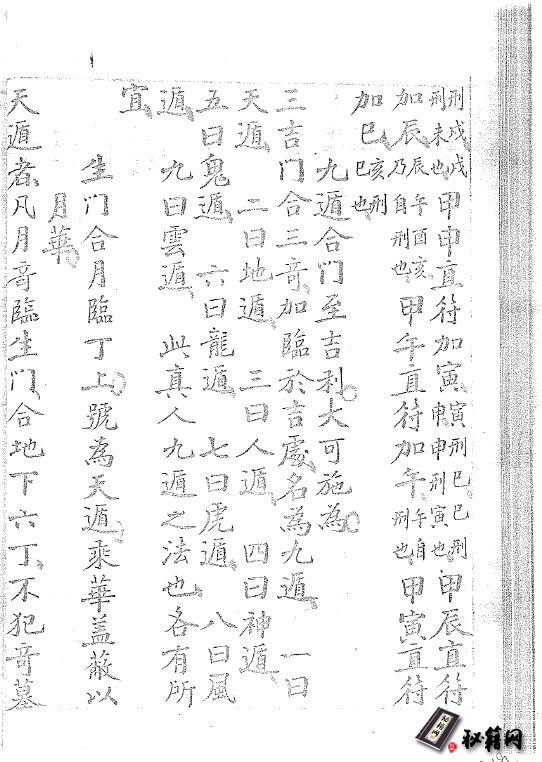 刑戌戌刑未也甲申直符加寅寅刑巳巳刑申申刑寅也甲辰直符
加辰辰午酉亥乃自刑也甲午直符加午午自刑也甲寅直符
加巳亥刑巳也
九遁合门至吉利大可施為
三吉门合三奇加臨於吉處名為九遁 一曰
天遁 二曰地遁 三曰人遁 四曰神遁
五曰鬼遁 六曰龍遁 七曰虎遁 八曰風
遁 九曰雲遁 此真人九遁之法也各有所
宜
生门合月臨丁上號為天遁乘華蓋蔽以
月華
天遁者凡月竒臨生门合地下六丁不犯竒墓
秘籍网